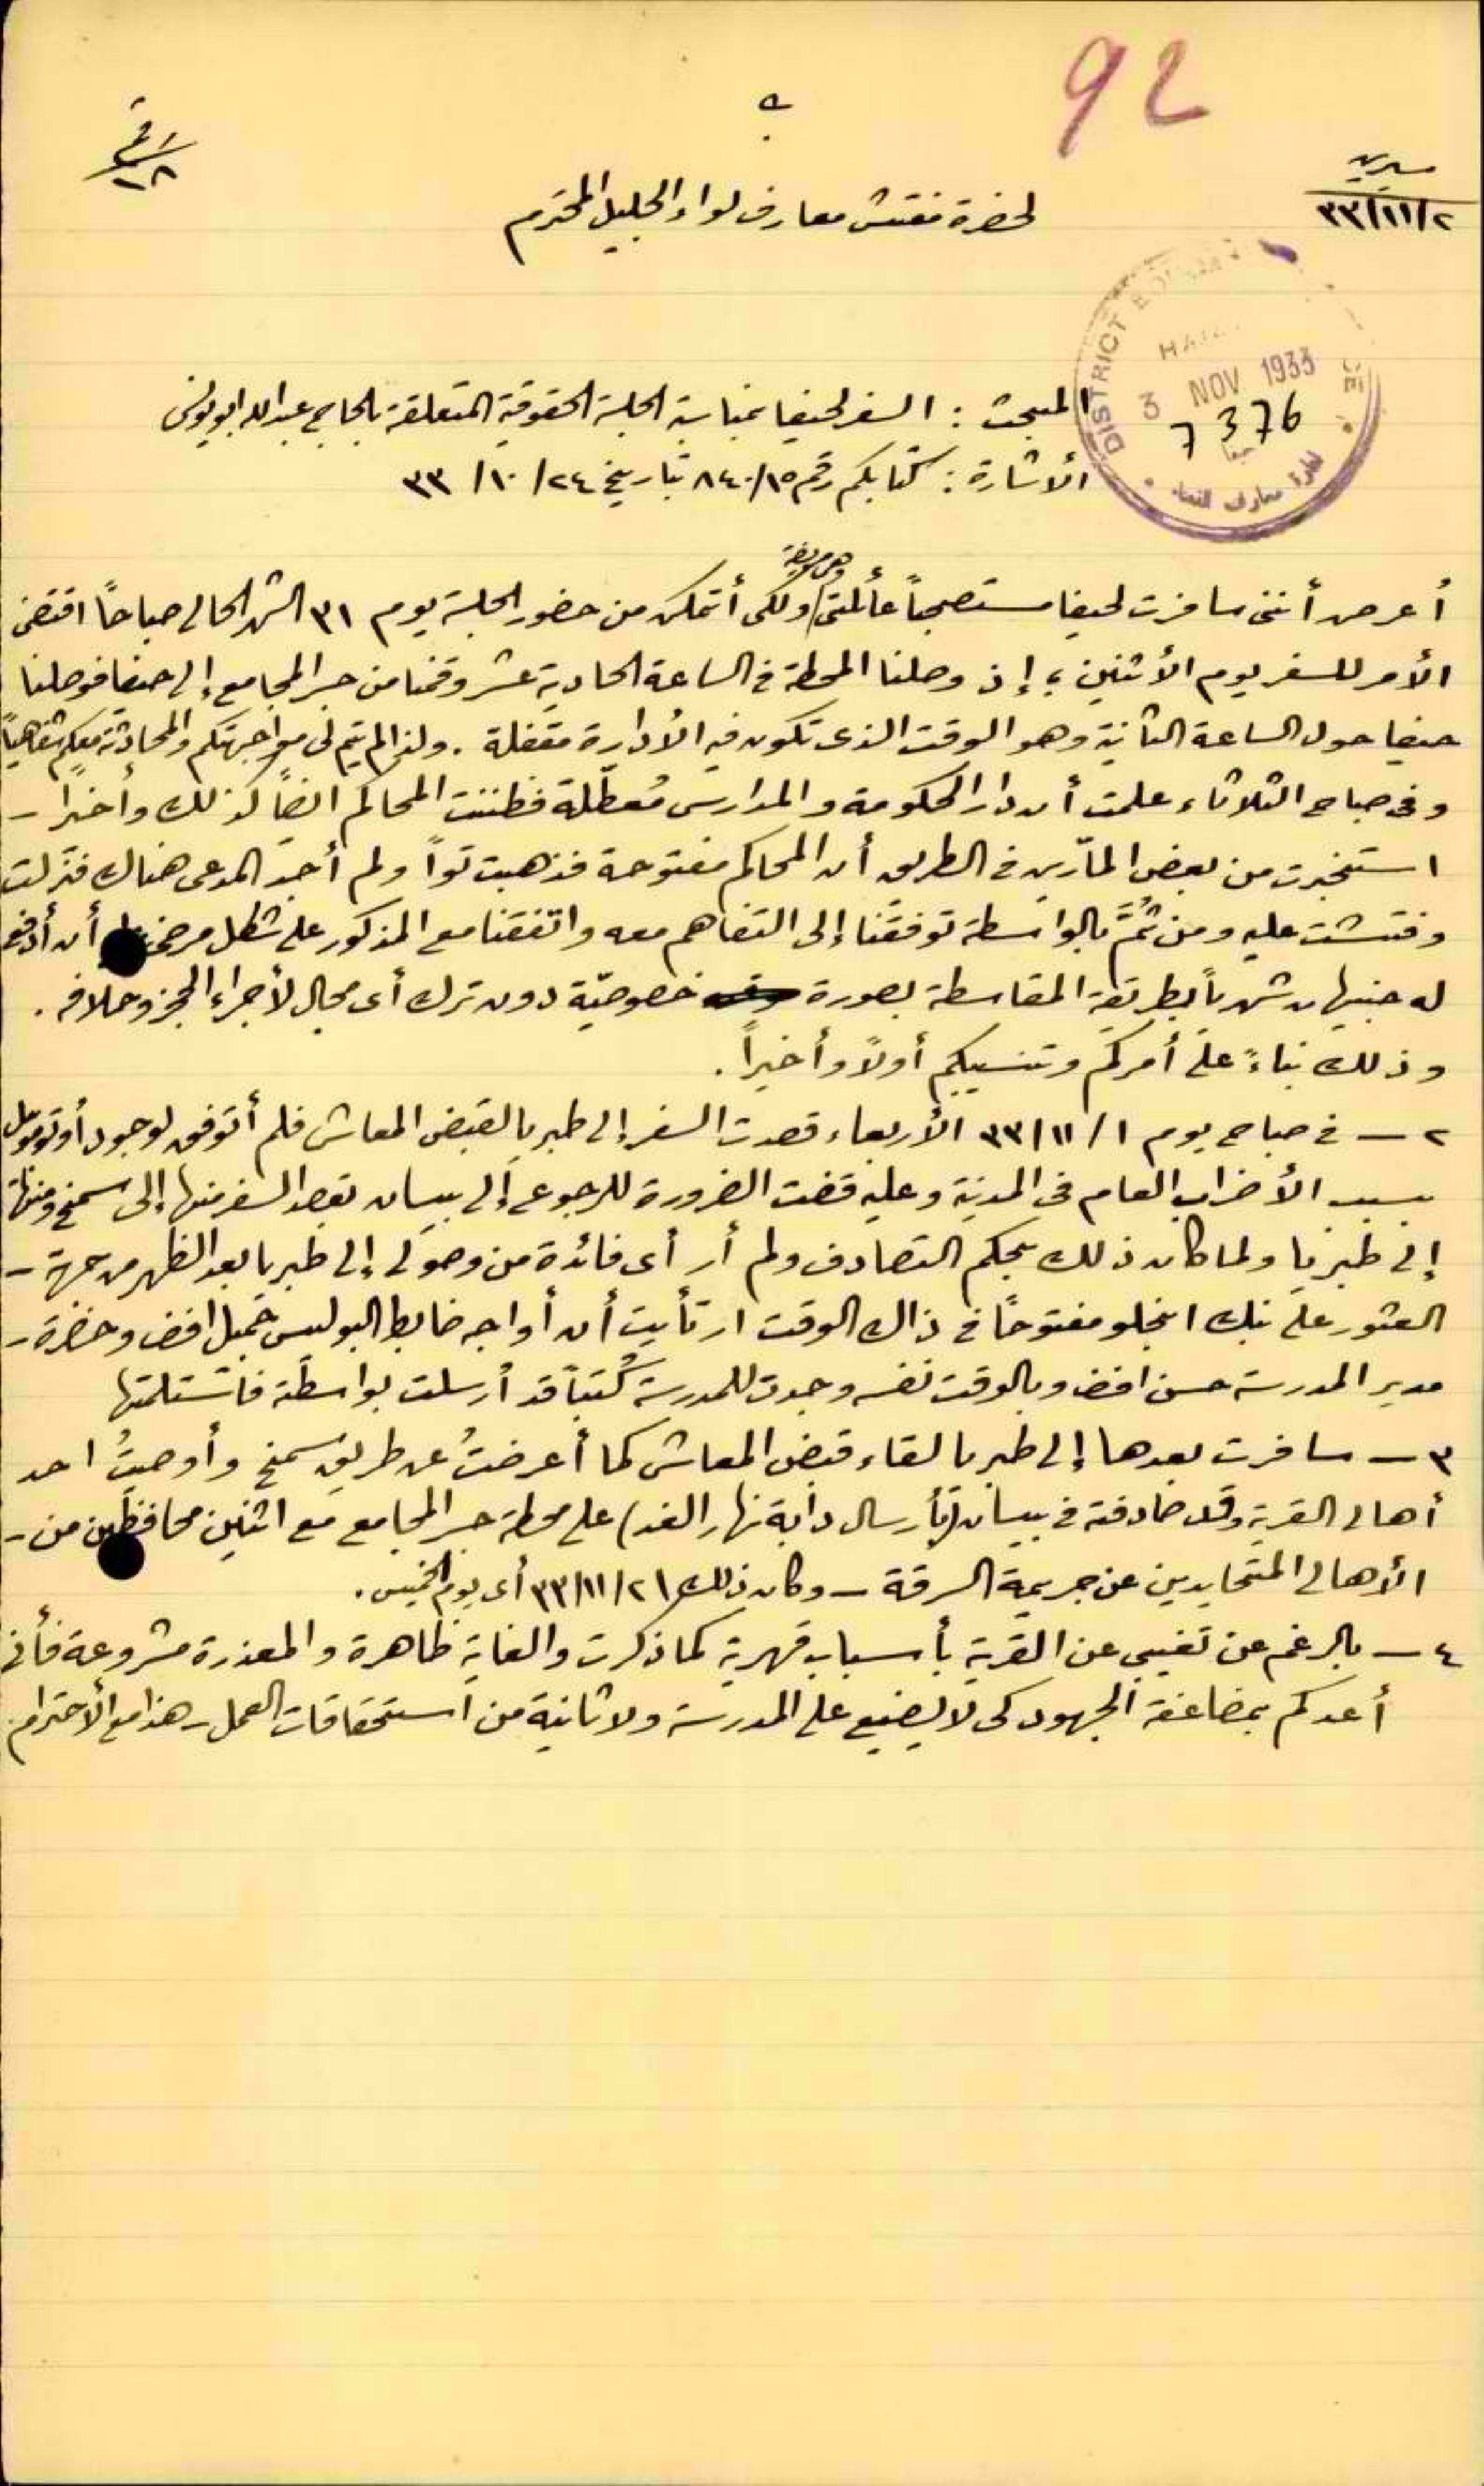 92
سيرين
٣٣/١١/٢
لحضرة مفتش معارف لواء الجليل المحترم
DISTRICT
3 NOV 1933
7376
حيفا
المبحث : السفر لحيفا بمناسبة الجلسة الحقوقية المتعلقة بالحاج عبدالله ابو يونس
الأشارة : كتابكم رقم ٨٤٠/١٥ بتاريخ ٢٤/ ١٠/ ٣٣
وهي مريضة
أعرض أنني سافرت لحيفا مستصحباً عائلتي ولكي أتمكن من حضور الجلسة يوم ٣١ الشهر الحالي صباحاً اقتضى
الأمر للسفر يوم الأثنين ، إذ وصلنا المحطة في الساعة الحادية عشر وقمنا من جسر المجامع إلى حيفا فوصلنا
حيفا حول الساعة الثانية وهو الوقت الذي تكون فيه الأدارة مقفلة . ولذا لم يتم لي مواجهتكم والمحادثة معكم شفاهياً
وفي صباح الثلاثاء علمت أن دار الحكومة والمدارس مُعطّلة فظننت المحاكم ايضاً كذلك وأخيراً -
استخبرت من بعض المارّين في الطريق أن المحاكم مفتوحة فذهبت تواً ولم أجد المدعى هناك فنزلت
وفتشت عليه ومن ثُمَّ بالواسطة توفقنا إلى التفاهم معه واتفقنا مع المذكور على شكل مرضي أن أدفع
له جنيهان شهرياً بطريقة المقاسطة بصورة خصوصيّة دون ترك أي مجال لأجراء الحجز وخلافه .
وذلك بناءً على أمركم وتنسيبكم أولاً وأخيراً .
٢ - في صباح يوم ١/ ٣٣/١١ الأربعاء قصدت السفر إلى طبريا لقبض المعاش فلم أتوفق لوجود أوتوموبيل
بسبب الأضراب العام في المدينة وعليه قضت الضرورة للرجوع إلى بيسان بقصد السفر منها إلى سمخ ومنها
إلى طبريا ولما كان ذلك بحكم التصادف ولم أر أي فائدة من وصولي إلى طبريا بعد الظهر من جهة -
العثور على بنك انجلو مفتوحاً في ذاك الوقت ارتأيت أن أواجه ضابط البوليس جميل افندي وحضرة -
مدير المدرسة حسن افندي وبالوقت نفسه وجدت للمدرسة كُتباً قد أرسلت بواسطته فاستلمتها
٣ - سافرت بعدها إلى طبريا لقاء قبض المعاش كما أعرضتُ عن طريق سمخ وأوصيتُ احد
أهالي القرية وقد صادفته في بيسان (بأرسال دابة نهار الغد) على محطة جسر المجامع مع اثنين محافظين من -
الأهالي المتحايدين عن جريمة السرقة - وكان ذلك ٣٣/١١/٢ أي يوم الخميس .
٤ - بالرغم عن تغيبي عن القرية بأسباب قهرية كما ذكرت والغاية ظاهرة والمعذرة مشروعة فأني
أعدكم بمضاعفة الجهود كي لا يضيع على المدرسة ولا ثانية من استحقاقات العمل - هذا مع الأحترام